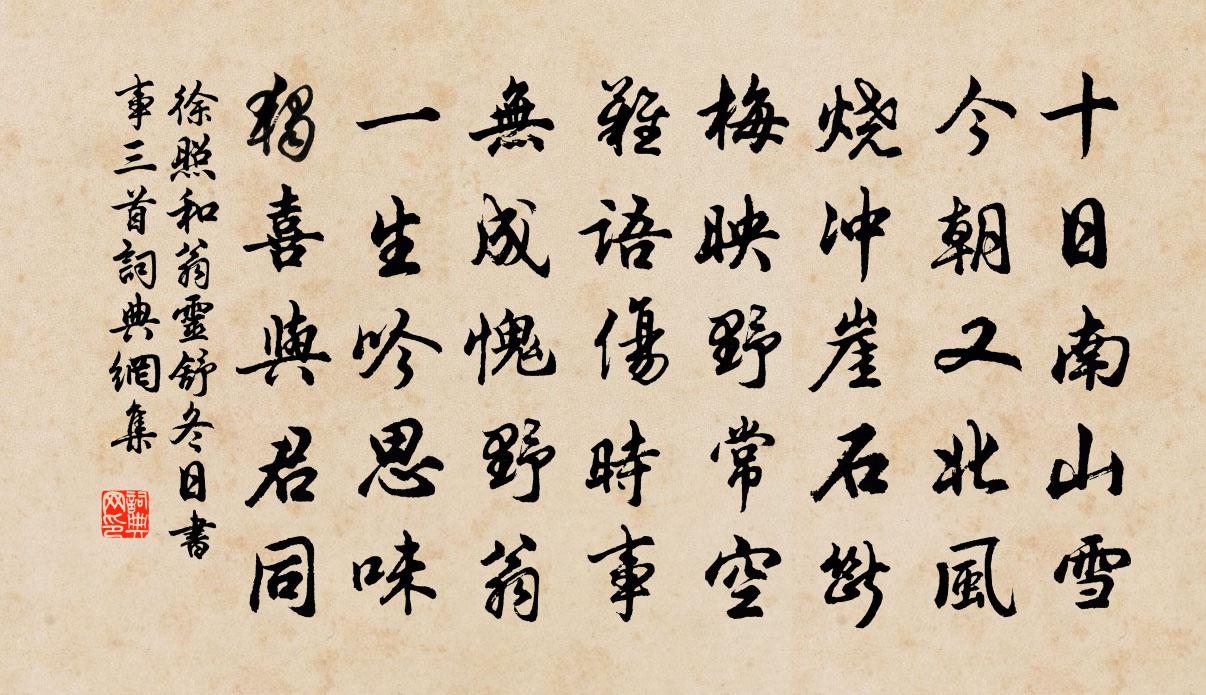 十日南山雪
今朝又北風
烧冲崖石断
梅映野常空
難語傷時事
無成愧野翁
一生吟思味
獨喜與君同
徐照和翁靈舒冬日書
事三首詞典網集
詞典
网印